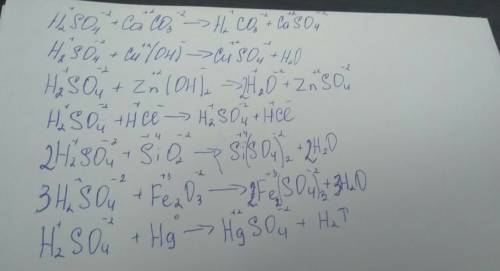 H₂⁺SO₄⁻² + Ca⁺²CO₃⁻² → H₂⁺CO₃⁻² + Ca⁺²SO₄⁻²
H₂⁺SO₄⁻² + Cu⁺⁺(OH)⁻ → Cu⁺²SO₄⁻² + H₂O
H₂⁺SO₄⁻² + Zn⁺²(OH)₂⁻ → 2H₂⁺O⁻² + Zn⁺²SO₄⁻²
H₂⁺SO₄⁻² + H⁺Cl⁻ → H₂⁺SO₄⁻² + H⁺Cl⁻
2H₂⁺SO₄⁻² + Si⁻⁴O₂⁻² → Si⁺⁴(SO₄)₂⁻² + 2H₂O
3H₂⁺SO₄⁻² + Fe₂⁺³O₃⁻² → 2Fe₂⁺³(SO₄)₃⁻² + 3H₂O
H₂⁺SO₄⁻² + Hg⁰ → Hg⁺²SO₄⁻² + H₂↑